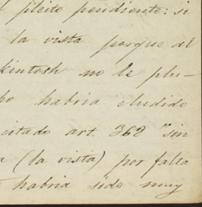 l pleito pendiente: si
la vista porque del
kintosh no le plu-
ho habria eludido
citado art. 362 "sin
a (la vista) por falta
habria sido muy